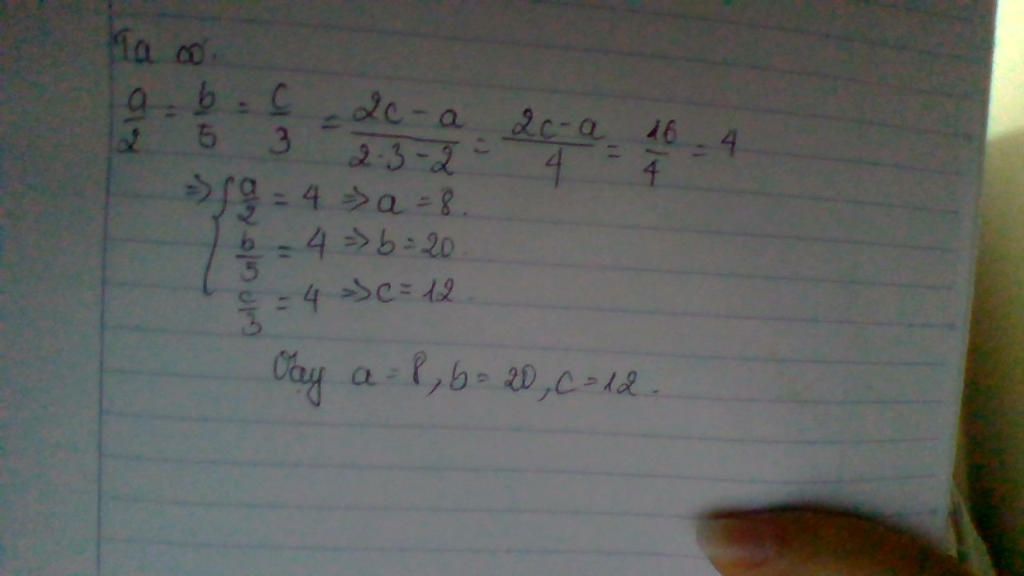 Ta có.
a/2 = b/5 = c/3 = 2c-a/2·3-2 = 2c-a/4 = 16/4 = 4
=> { a/2 = 4 => a = 8.
b/5 = 4 => b = 20.
c/3 = 4 => c = 12.
Vậy a = 8, b = 20, c = 12.